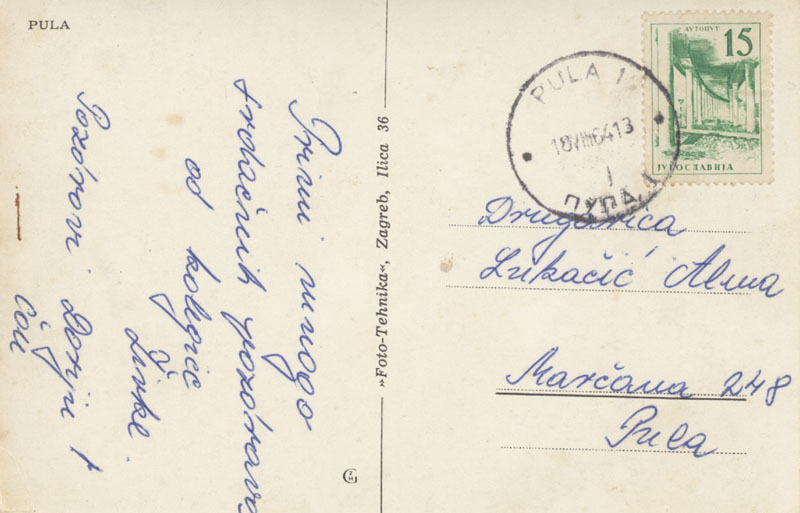 PULA
Primi mnogo
srdačnih pozdrava
od kolegice
Živke.
Pozdravi
»Foto-Tehnika«, Zagreb, Ilica 36
АУТОПУТ
15
ЈУГОСЛАВИЈА
PULA 1
18VIII6413
ПУЛА 1
Drugarica
Lukačić Alma
Marčana 248
Pula